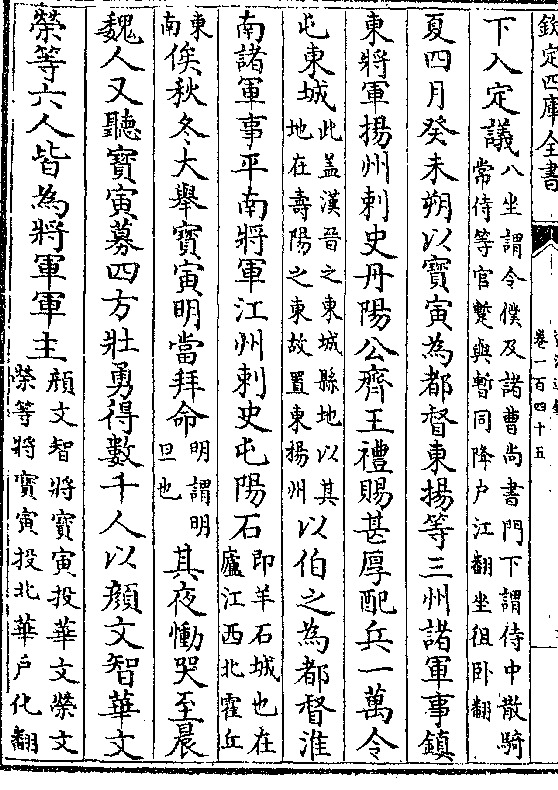 欽定四庫全書
卷一百四十五
下入定議八坐謂令僕及諸曹尚書門下謂侍中散騎常侍等官蹔與暫同降户江翻坐徂卧翻
夏四月癸未朔以寶寅為都督東揚等三州諸軍事鎮
東將軍揚州刺史丹陽公齊王禮賜甚厚配兵一萬令
屯東城此盖漢晉之東城縣地以其地在壽陽之東故置東揚州以伯之為都督淮
南諸軍事平南將軍江州刺史屯陽石即羊石城也在廬江西北霍丘
東南俟秋冬大舉寶寅明當拜命明謂明旦也其夜慟哭至晨
魏人又聽寶寅募四方壯勇得數千人以顔文智華文
榮等六人皆為將軍軍主顔文智將寶寅投華文榮文榮等將寶寅投北華户化翻